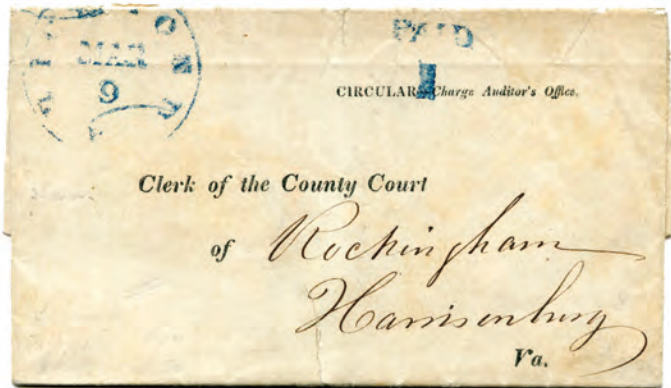 MAR
9
PAID
CIRCULAR Charge Auditor's Office.
Clerk of the County Court
of Rockingham
Harrisonburg
Va.